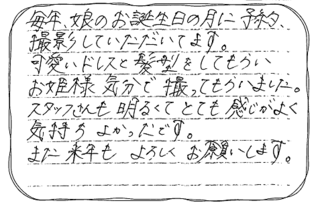 毎年、娘のお誕生日の月に予約、
撮影していただいてます。
可愛いドレスと髪型をしてもらい
お姫様気分で撮ってもらいました。
スタッフさんも明るくてとても感じがよく
気持ちよかったです。
また来年もよろしくお願いします。